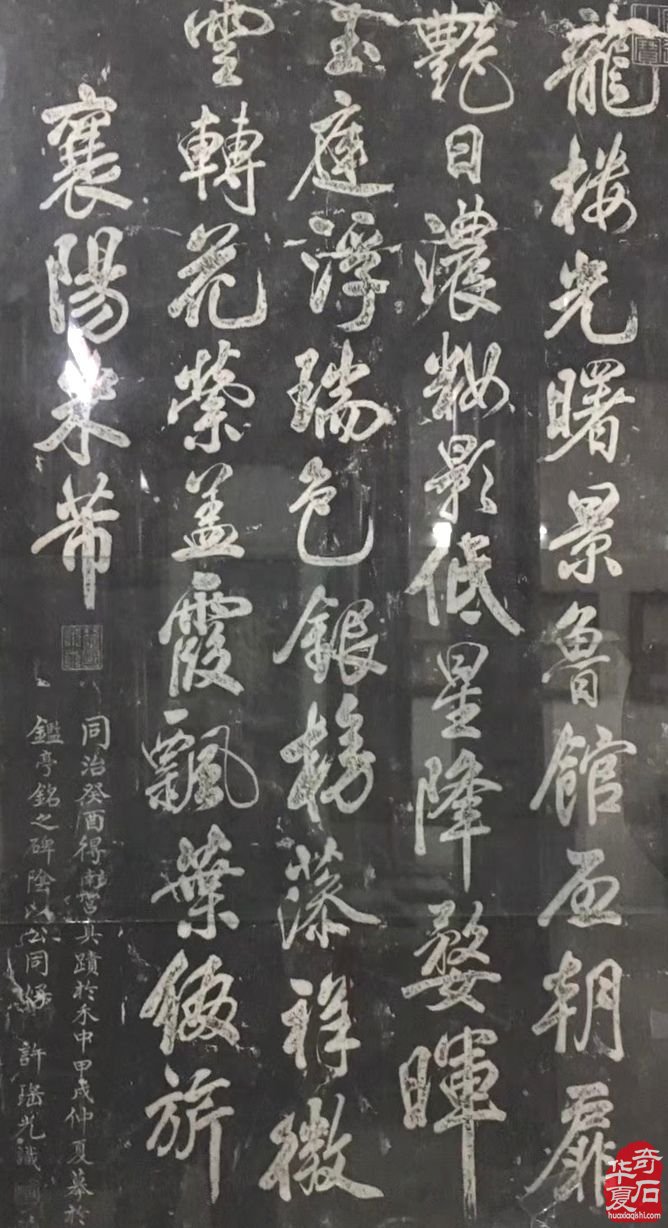 龍楼光曙景魯館啓朝扉
艷日濃粧影低星降婺暉
玉庭浮瑞色銀榜藻祥徽
雲轉花縈蓋霞飄葉綴旂
襄陽米芾
同治癸酉得南宮真蹟於禾中甲戌仲夏摹於
鑑亭銘之碑陰以公同好 許瑤光識
华夏奇石
huaxiaqishi.com